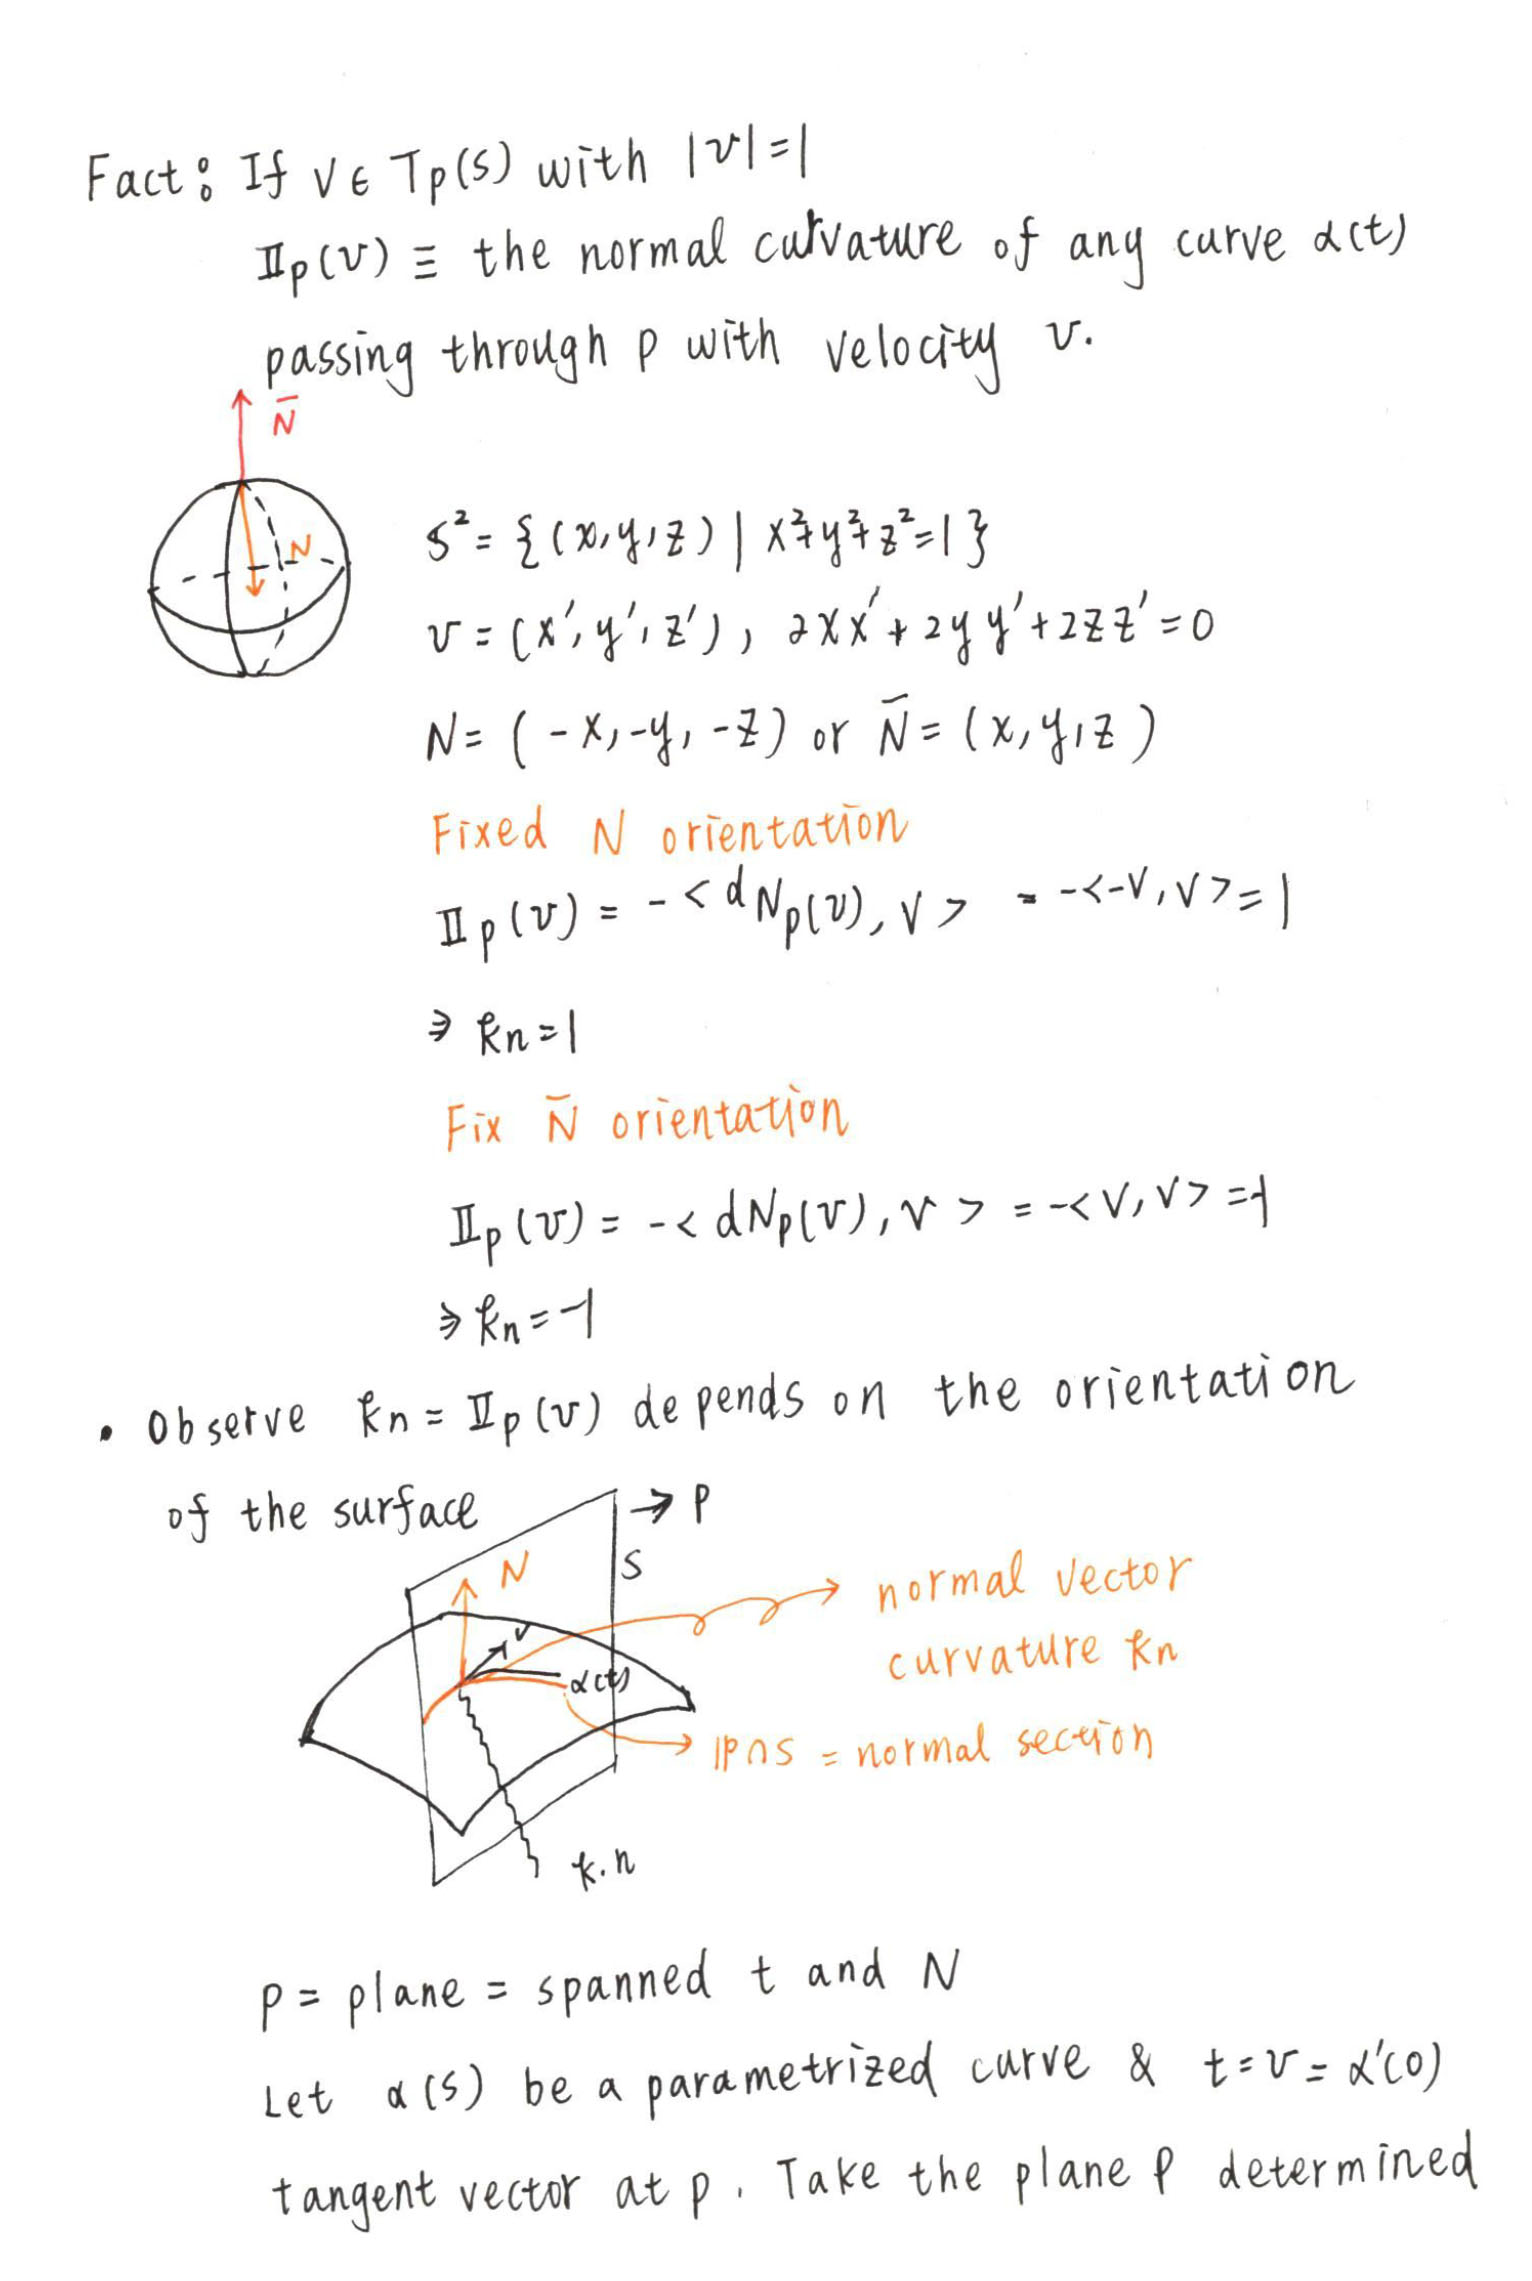 Fact: If v ∈ Tp(S) with |v|=1
IIp(v) ≡ the normal curvature of any curve α(t)
passing through p with velocity v.
N̄
N
S² = {(x,y,z) | x²+y²+z²=1}
v = (x', y', z'), 2xx' + 2yy' + 2zz' = 0
N = (-x, -y, -z) or N̄ = (x, y, z)
Fixed N orientation
IIp(v) = -<dNp(v), v> = -<-v, v> = 1
⇒ kn = 1
Fix N̄ orientation
IIp(v) = -<dNp(v), v> = -<v, v> = -1
⇒ kn = -1
• Observe kn = IIp(v) depends on the orientation
of the surface
→ P
S
N
v
α(t)
normal vector
curvature kn
IP∩S = normal section
k.n
P = plane = spanned t and N
Let α(s) be a parametrized curve & t = v = α'(0)
tangent vector at p. Take the plane P determined